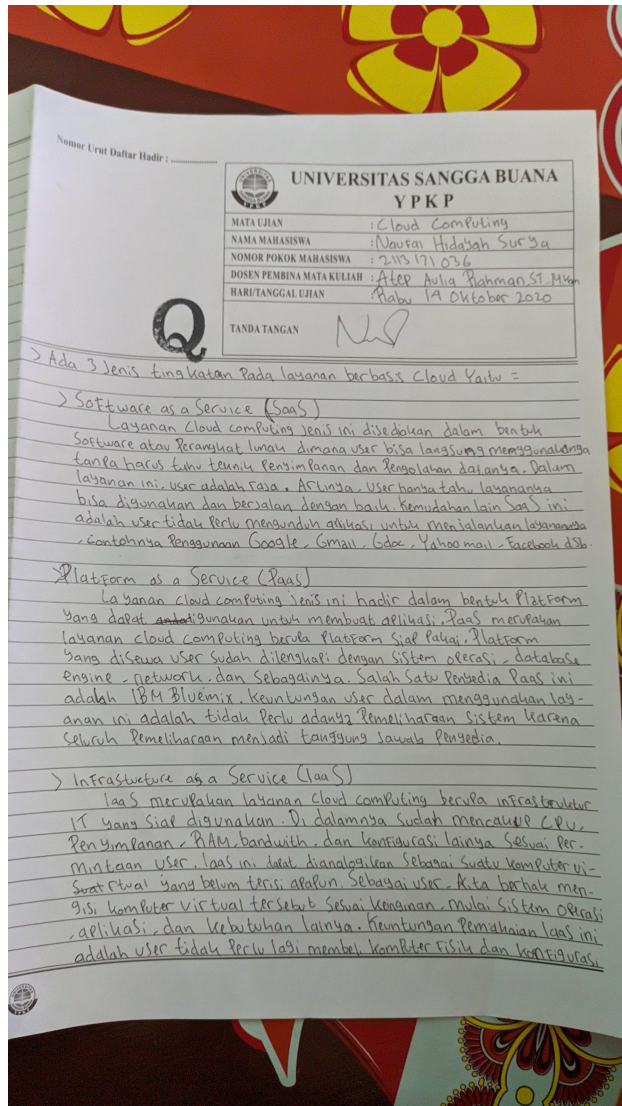 Nomor Urut Daftar Hadir : ..................
UNIVERSITAS SANGGA BUANA
YPKP
MATA UJIAN : Cloud Computing
NAMA MAHASISWA : Naufal Hidayah Surya
NOMOR POKOK MAHASISWA : 2113171036
DOSEN PEMBINA MATA KULIAH : Atep Aulia Rahman, ST. M.Kom
HARI/TANGGAL UJIAN : Rabu 14 Oktober 2020
TANDA TANGAN
Q
> Ada 3 Jenis tingkatan Pada layanan berbasis Cloud Yaitu =
> Software as a Service (SaaS)
Layanan Cloud computing Jenis ini disediakan dalam bentuk
Software atau Perangkat lunak dimana user bisa langsung menggunakannya
tanpa harus tahu teknik Penyimpanan dan Pengolahan datanya. Dalam
layanan ini, user adalah raja. Artinya, User hanya tahu layananya
bisa digunakan dan berjalan dengan baik. Kemudahan lain SaaS ini
adalah user tidak Perlu mengunduh aplikasi untuk menjalankan layanannya
, Contohnya Penggunaan Google, Gmail, Gdoc, Yahoo mail, Facebook dsb.
> Platform as a Service (PaaS)
Layanan cloud computing jenis ini hadir dalam bentuk Platform
yang dapat digunakan untuk membuat aplikasi. PaaS merupakan
layanan cloud computing berupa Platform siap Pakai. Platform
yang disewa user sudah dilengkapi dengan sistem operasi, database
engine, network, dan sebagainya. Salah Satu Penyedia PaaS ini
adalah IBM Bluemix. Keuntungan user dalam menggunakan lay-
anan ini adalah tidak Perlu adanya Pemeliharaan Sistem Karena
seluruh Pemeliharaan menjadi tanggung Jawab Penyedia.
> Infrastucture as a Service (IaaS)
IaaS merupakan layanan Cloud computing berupa infrastruktur
IT yang siap digunakan. Di dalamnya sudah mencakup CPU,
Penyimpanan, RAM, bandwith, dan konfigurasi lainya sesuai Per-
mintaan user. Iaas ini dapat dianalogikan Sebagai suatu komputer vi-
rtual yang belum terisi apapun. Sebagai user, Kita berhak men-
gisi komputer virtual tersebut sesuai keinginan, mulai sistem operasi
, aplikasi, dan kebutuhan lainya. Keuntungan Pemakaian Iaas ini
adalah user tidak Perlu lagi membeli komputer Fisik dan konfigurasi